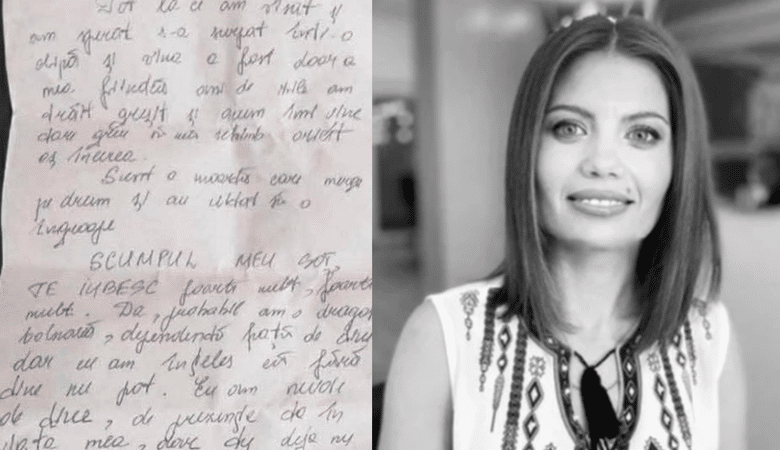 Tot la ce am visat și
am sperat s-a surpat într-o
clipă și vina a fost doar a
mea fiindcă ani de zile am
trăit greșit și acum îmi vine
greu să mă schimb oricît
aș încerca.
Sunt o moartă care merge
pe drum și au uitat s-o
îngroape
SCUMPUL MEU SOȚ,
TE IUBESC foarte mult, foarte
mult. Da, probabil am o dragoste
bolnavă, dependentă față de tine
dar eu am înțeles că fără
tine nu pot. Eu am nevoie
de tine, de prezența ta în
viața mea, doar că deja nu